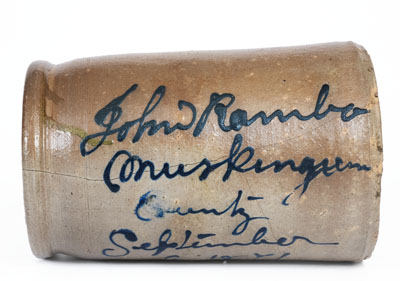 John Rambo
Muskingum
County
September